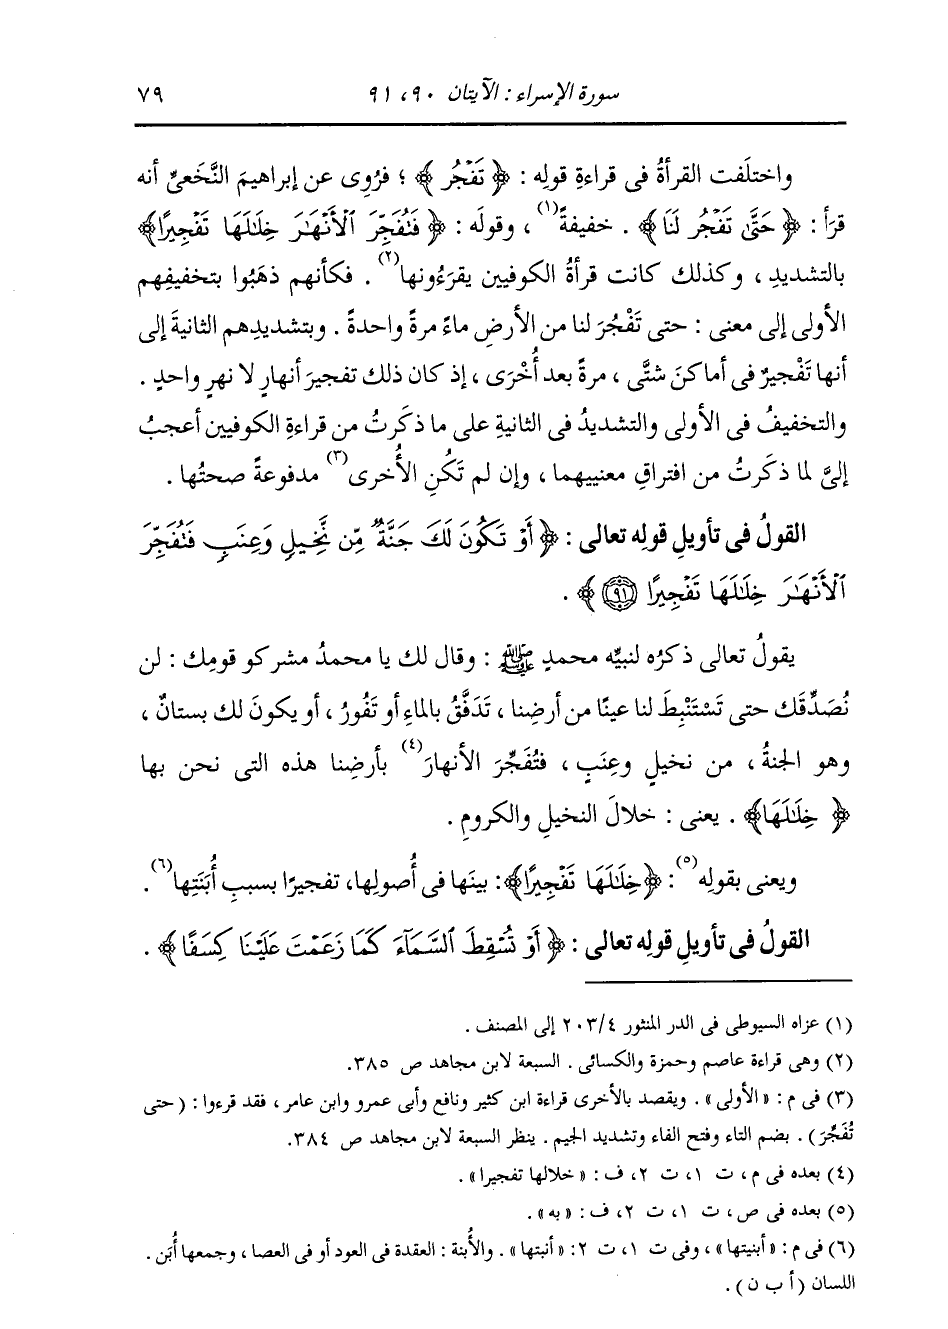 سورة الإسراء : الآيتان ٩٠، ٩١ ٧٩
واختلَفت القرأةُ فى قراءةِ قولِه : ﴿ تَفْجُرَ ﴾ ؛ فرُوِى عن إبراهيمَ النَّخَعىِّ أنه
قرَأ : ﴿ حَتَّىٰ تَفْجُرَ لَنَا ﴾ . خفيفةً(١) ، وقولَه : ﴿ فَتُفَجِّرَ ٱلْأَنْهَـٰرَ خِلَـٰلَهَا تَفْجِيرًا ﴾
بالتشديدِ ، وكذلك كانت قرأةُ الكوفيين يقرَءونها(٢) . فكأنهم ذهَبُوا بتخفيفِهم
الأولى إلى معنى : حتى تَفْجُرَ لنا من الأرضِ ماءً مرةً واحدةً . وبتشديدِهم الثانيةَ إلى
أنها تَفْجيرٌ فى أماكنَ شتَّى ، مرةً بعد أُخْرَى ، إذ كان ذلك تفجيرَ أنهارٍ لا نهرٍ واحدٍ .
والتخفيفُ فى الأولى والتشديدُ فى الثانيةِ على ما ذكَرتُ من قراءةِ الكوفيين أعجبُ
إلىَّ لما ذكَرتُ من افتراقِ معنييهما ، وإن لم تَكُنِ الأُخرى(٣) مدفوعةً صحتُها .
القولُ فى تأويلِ قولِه تعالى : ﴿ أَوْ تَكُونَ لَكَ جَنَّةٌ مِّن نَّخِيلٍ وَعِنَبٍ فَتُفَجِّرَ
ٱلْأَنْهَـٰرَ خِلَـٰلَهَا تَفْجِيرًا ٩١ ﴾ .
يقولُ تعالى ذكرُه لنبيِّه محمدٍ ﷺ : وقال لك يا محمدُ مشركو قومِك : لن
نُصَدِّقَك حتى تَسْتَنْبِطَ لنا عينًا من أرضِنا ، تَدَفَّقُ بالماءِ أو تَفُورُ ، أو يكونَ لك بستانٌ ،
وهو الجنةُ ، من نخيلٍ وعِنَبٍ ، فتُفَجِّرَ الأنهارَ(٤) بأرضِنا هذه التى نحن بها
﴿ خِلَـٰلَهَا ﴾ . يعنى : خلالَ النخيلِ والكرومِ .
ويعنى بقولِه(٥) : ﴿ خِلَـٰلَهَا تَفْجِيرًا ﴾ : بينَها فى أُصولِها، تفجيرًا بسببِ أُبَنَتِها(٦) .
القولُ فى تأويلِ قولِه تعالى : ﴿ أَوْ تُسْقِطَ ٱلسَّمَآءَ كَمَا زَعَمْتَ عَلَيْنَا كِسَفًا ﴾ .
(١) عزاه السيوطى فى الدر المنثور ٢٠٣/٤ إلى المصنف .
(٢) وهى قراءة عاصم وحمزة والكسائى . السبعة لابن مجاهد ص ٣٨٥.
(٣) فى م : «الأولى» . ويقصد بالأخرى قراءة ابن كثير ونافع وأبى عمرو وابن عامر ، فقد قرءوا : (حتى
تُفَجِّرَ) . بضم التاء وفتح الفاء وتشديد الجيم . ينظر السبعة لابن مجاهد ص ٣٨٤.
(٤) بعده فى م ، ت ١، ت ٢، ف : «خلالها تفجيرا» .
(٥) بعده فى ص ، ت ١، ت ٢، ف : «به» .
(٦) فى م : «أبنيتها» ، وفى ت ١، ت ٢: «أنبتها» . والأُبنة : العقدة فى العود أو فى العصا ، وجمعها أُبَن .
اللسان (أ ب ن) .